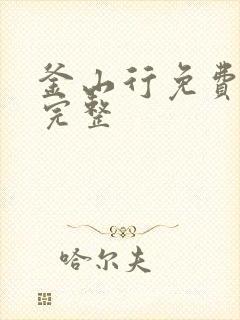 釜山行免费
完整
哈尔夫